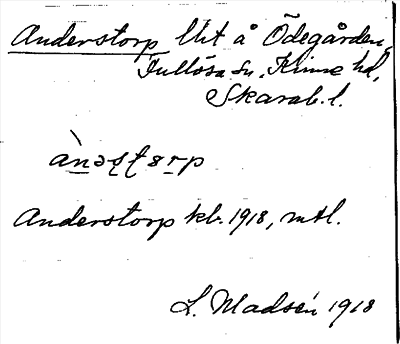 Anderstorp lht å Ödegården,
Fullösa sn, Kinne hd,
Skarab. l.
Anderstorp kb. 1918, mtl.
L. Madsén 1918